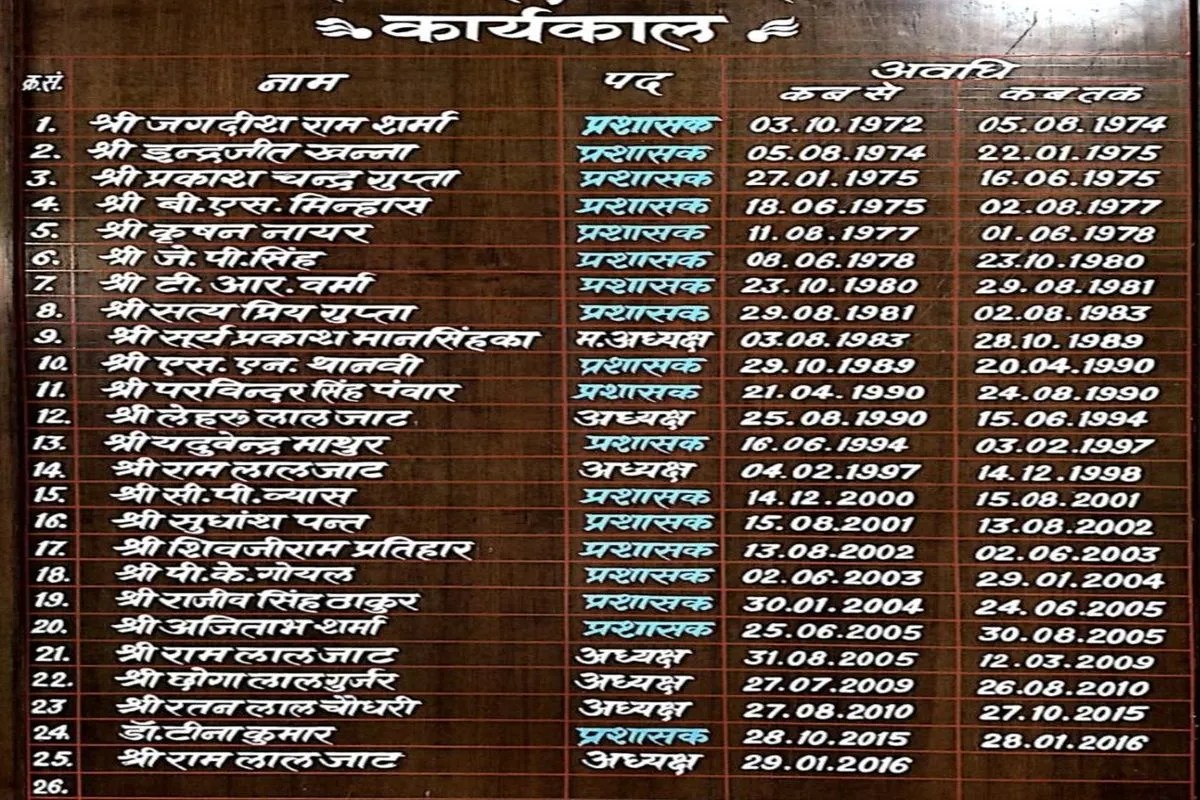 कार्यकाल
क्र.सं. नाम पद अवधि
कब से कब तक
1. श्री जगदीश राम शर्मा प्रशासक 03.10.1972 05.08.1974
2. श्री इन्द्रजीत खन्ना प्रशासक 05.08.1974 22.01.1975
3. श्री प्रकाश चन्द्र गुप्ता प्रशासक 27.01.1975 16.06.1975
4. श्री बी.एस. मिन्हास प्रशासक 18.06.1975 02.08.1977
5. श्री कृषन नायर प्रशासक 11.08.1977 01.06.1978
6. श्री जे.पी.सिंह प्रशासक 08.06.1978 23.10.1980
7. श्री टी.आर.वर्मा प्रशासक 23.10.1980 29.08.1981
8. श्री सत्य प्रिय गुप्ता प्रशासक 29.08.1981 02.08.1983
9. श्री सूर्य प्रकाश मानसिंहका म.अध्यक्ष 03.08.1983 28.10.1989
10. श्री एस.एन.थानवी प्रशासक 29.10.1989 20.04.1990
11. श्री परविन्दर सिंह पंवार प्रशासक 21.04.1990 24.08.1990
12. श्री लेहरू लाल जाट अध्यक्ष 25.08.1990 15.06.1994
13. श्री यदुवेन्द्र माथुर प्रशासक 16.06.1994 03.02.1997
14. श्री राम लाल जाट अध्यक्ष 04.02.1997 14.12.1998
15. श्री सी.पी.व्यास प्रशासक 14.12.2000 15.08.2001
16. श्री सुधांश पन्त प्रशासक 15.08.2001 13.08.2002
17. श्री शिवजीराम प्रतिहार प्रशासक 13.08.2002 02.06.2003
18. श्री पी.के.गोयल प्रशासक 02.06.2003 29.01.2004
19. श्री राजीव सिंह ठाकुर प्रशासक 30.01.2004 24.06.2005
20. श्री अजिताभ शर्मा प्रशासक 25.06.2005 30.08.2005
21. श्री राम लाल जाट अध्यक्ष 31.08.2005 12.03.2009
22. श्री छोगा लाल गुर्जर अध्यक्ष 27.07.2009 26.08.2010
23 श्री रतन लाल चौधरी अध्यक्ष 27.08.2010 27.10.2015
24. डॉ.टीना कुमार प्रशासक 28.10.2015 28.01.2016
25. श्री राम लाल जाट अध्यक्ष 29.01.2016
26.